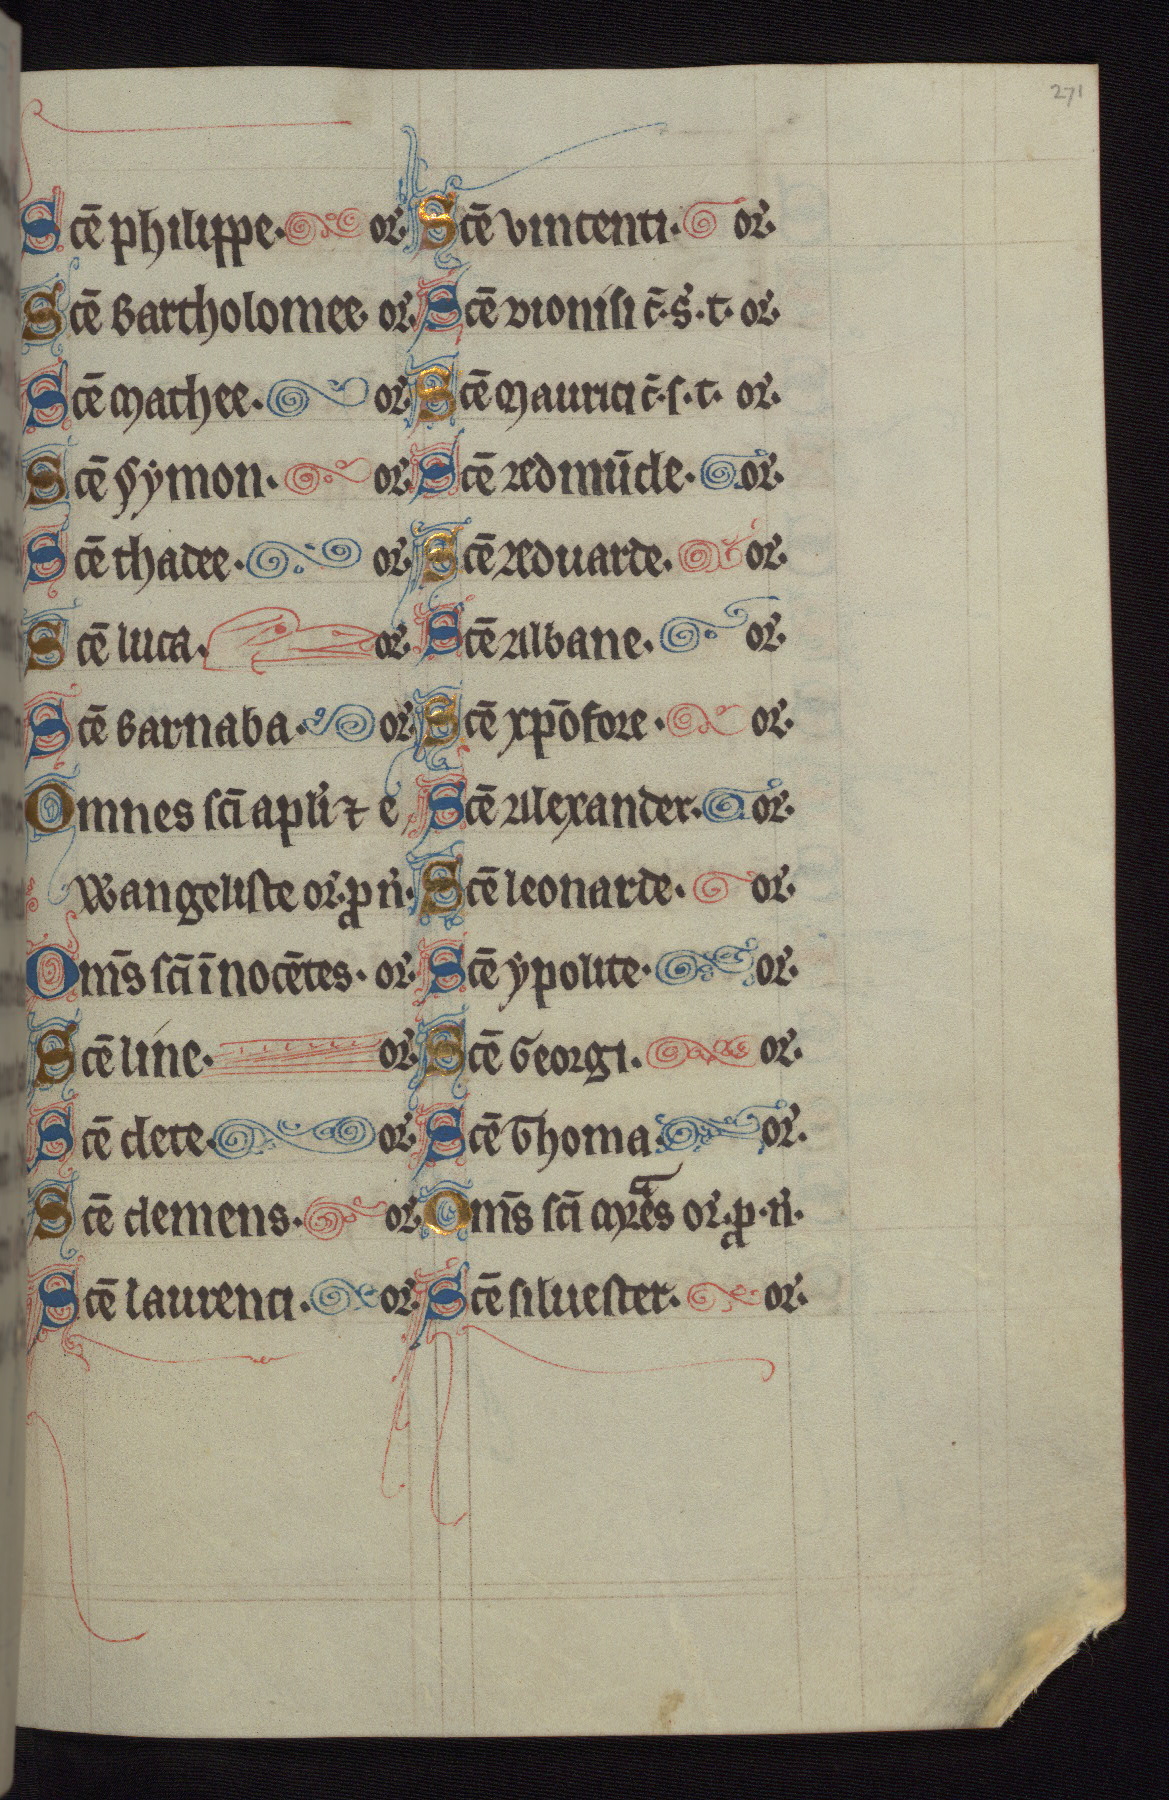 271
Scē philippe. or.
Scē Bartholomee or.
Scē Mathee. or.
Scē Symon. or.
Scē thadee. or.
Scē luca. or.
Scē Barnaba. or.
Omnes sci apli ⁊ e
wangeliste or. p n.
Om̄s sci īnocētes. or.
Scē line. or.
Scē clete. or.
Scē clemens. or.
Scē laurenti. or.
Scē vincenti. or.
Scē dionisi c̄. s. t. or.
Scē Maurici c̄. s. t. or.
Scē Aedmūde. or.
Scē Aeduarde. or.
Scē Albane. or.
Scē xpōfore. or.
Scē Alexander. or.
Scē leonarde. or.
Scē ypolite. or.
Scē Georgi. or.
Scē Thoma. or.
Om̄s sci mr̄es or. p. n.
Scē siluester. or.